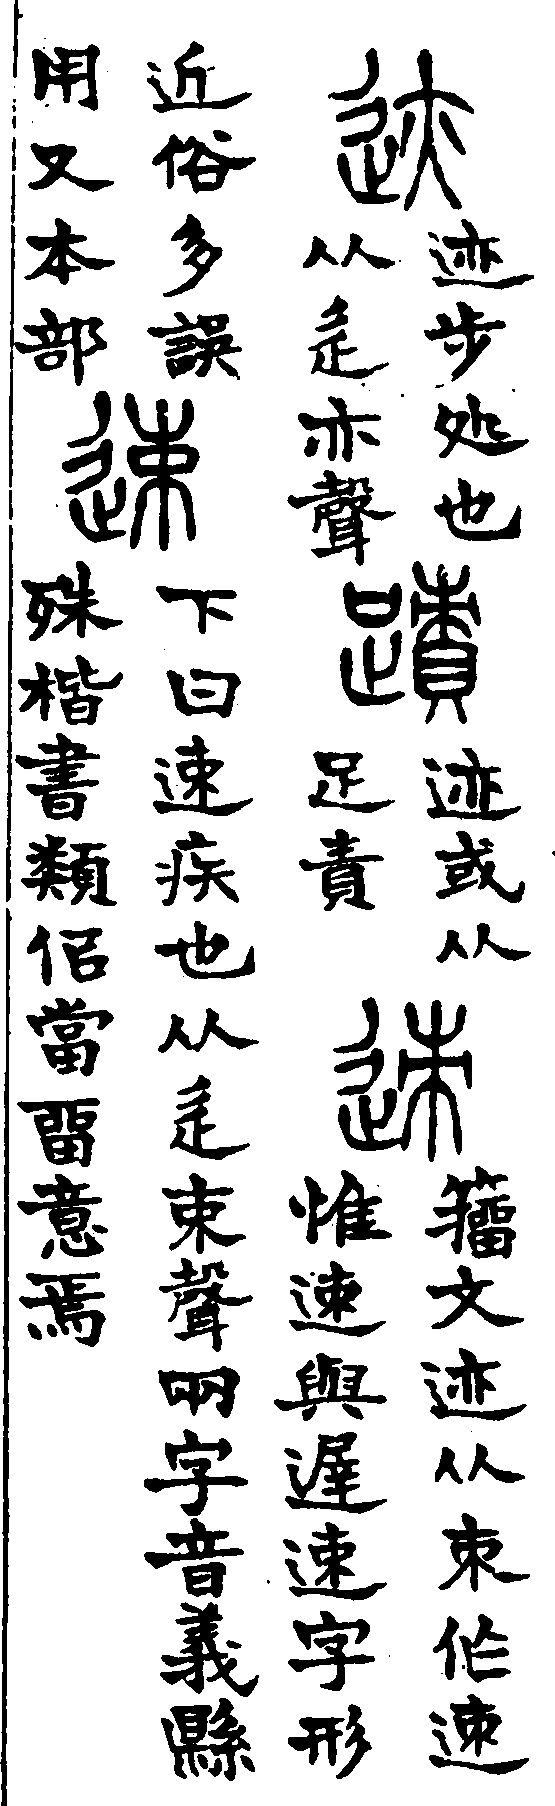 迹
迹步処也
从辵亦聲
蹟
迹或从
足責
𨒪
籒文迹从朿作𨒪
惟𨒪與遲速字形
近俗多誤
用又本部
速
下曰速疾也从辵束聲兩字音義縣
殊楷書類佀當畱意焉